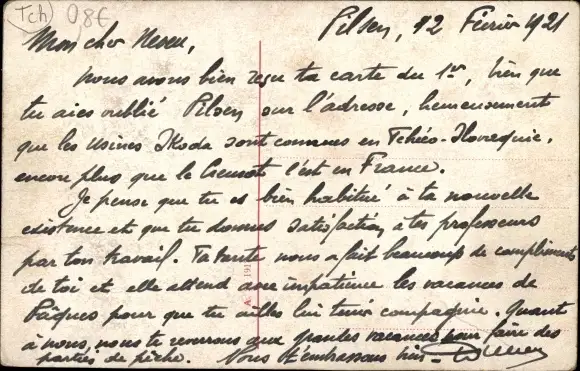 Tch 08€
Pilsen, 12 Février 1921
Mon cher Neveu,
Nous avons bien reçu ta carte du 1er, bien que
tu aies oublié Pilsen sur l'adresse, heureusement
que les usines Skoda sont connues en Tchéco-Slovaquie,
encore plus que le Creusot l'est en France.
Je pense que tu es bien habitué à ta nouvelle
existence et que tu donnes satisfaction à tes professeurs
par ton travail. Ta tante nous a fait beaucoup de compliments
de toi et elle attend avec impatience les vacances de
Pâques pour que tu ailles lui tenir compagnie. Quant
à nous, nous te reverrons aux grandes vacances pour faire des
parties de pêche. Nous t'embrassons bien